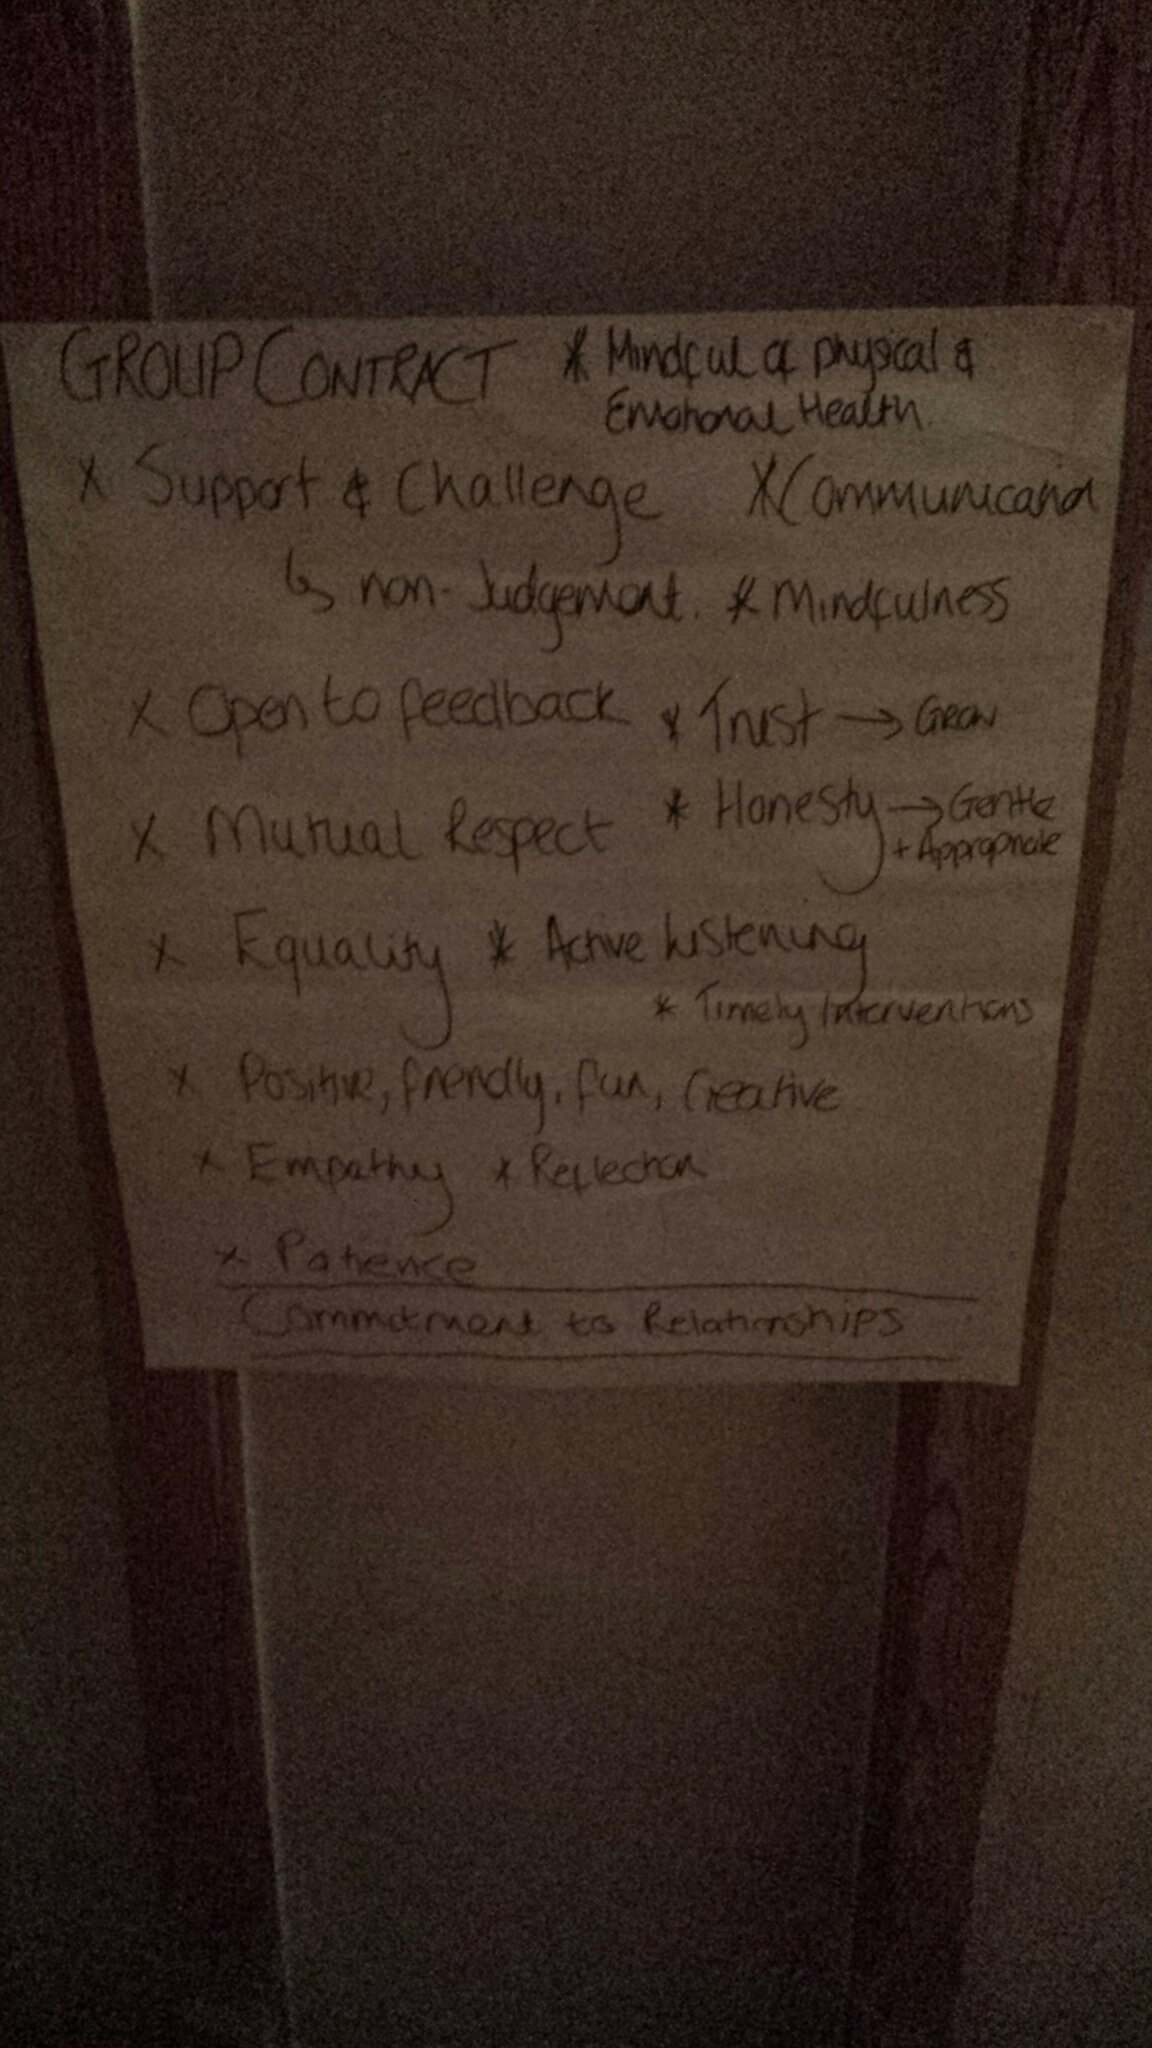 GROUP CONTRACT * Mindful of physical &
Emotional Health.
x Support & Challenge x Communication
↳ non-Judgement. * Mindfulness
x Open to feedback * Trust → Grow
x Mutual Respect * Honesty → Gentle
+ Appropriate
x Equality * Active Listening
* Timely Interventions
x Positive, friendly, fun, Creative
x Empathy * Reflection
x Patience
Commitment to Relationships